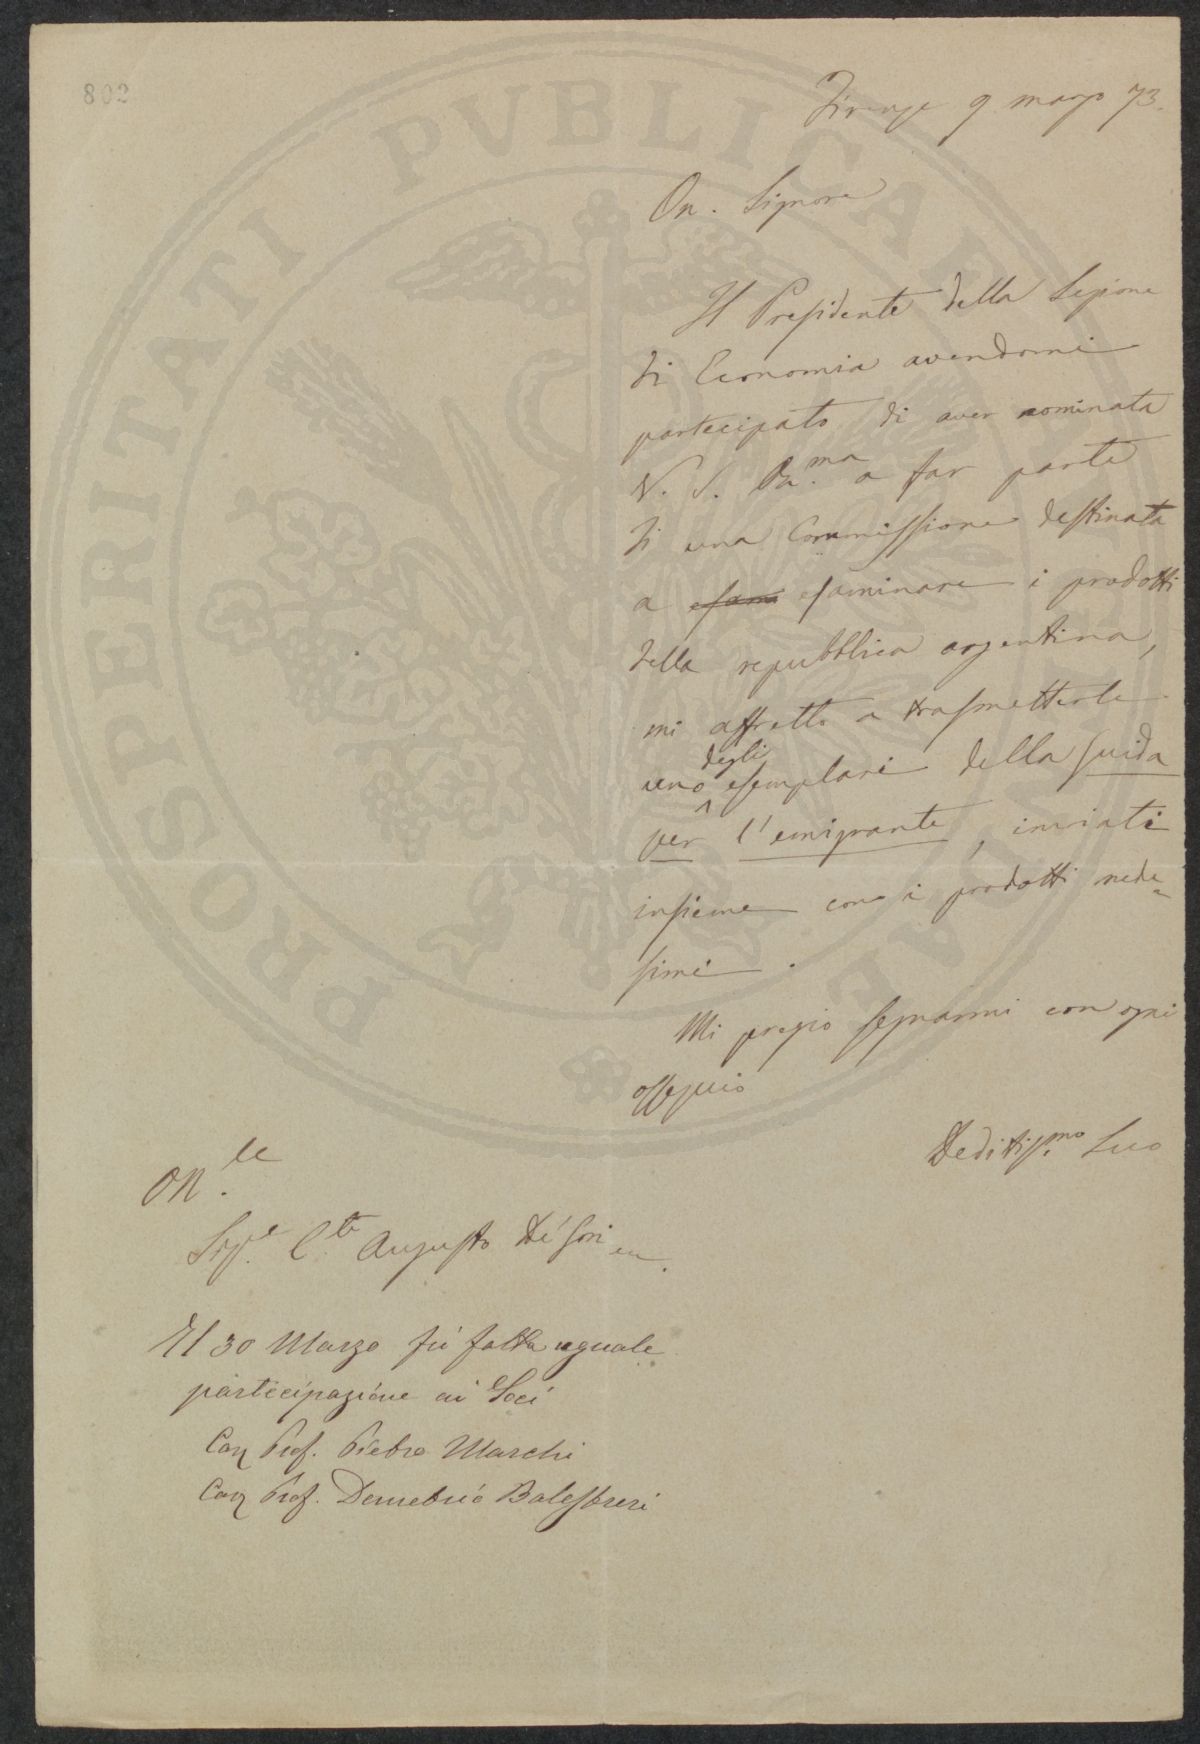 802
Firenze 9 marzo 73.
On. Signore
Il Presidente della Sezione
di Economia avendomi
partecipato di aver nominata
V. S. Ill.ma a far parte
di una Commissione destinata
a esam esaminare i prodotti
della repubblica argentina,
mi affretto a trasmetterle
uno degli esemplari della Guida
per l'emigrante, inviati
insieme con i prodotti mede-
simi.
Mi pregio segnarmi con ogni
ossequio
Deditiss.mo Suo
On.le
Sig.e C.te Augusto De' Gori
Il 30 Marzo fù fatta uguale
participazione ai Soci
Cav Prof. Pietro Marchi
Cav Prof. Demetrio Balestreri
PROSPERITATI PVBLICAE AVGENDAE